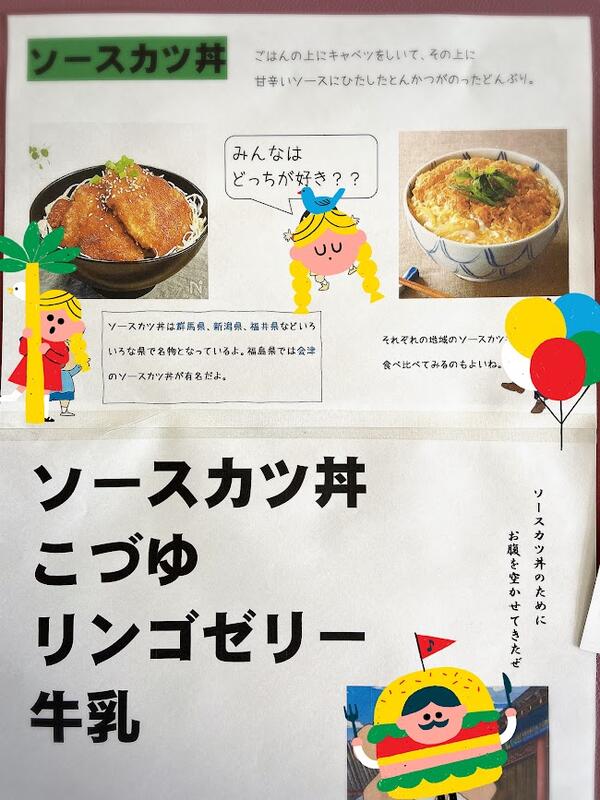 ソースカツ丼
ごはんの上にキャベツをしいて、その上に
甘辛いソースにひたしたとんかつがのったどんぶり。
みんなは
どっちが好き？？
ソースカツ丼は群馬県、新潟県、福井県などいろ
いろな県で名物となっているよ。福島県では会津
のソースカツ丼が有名だよ。
それぞれの地域のソースカツ
食べ比べてみるのもよいね。
ソースカツ丼
こづゆ
リンゴゼリー
牛乳
ソースカツ丼のために
お腹を空かせてきたぜ